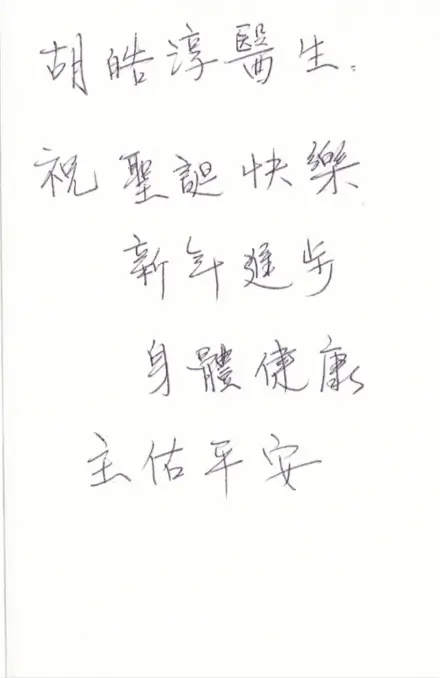 胡皓淳醫生:
祝聖誕快樂
新年進步
身體健康
主佑平安